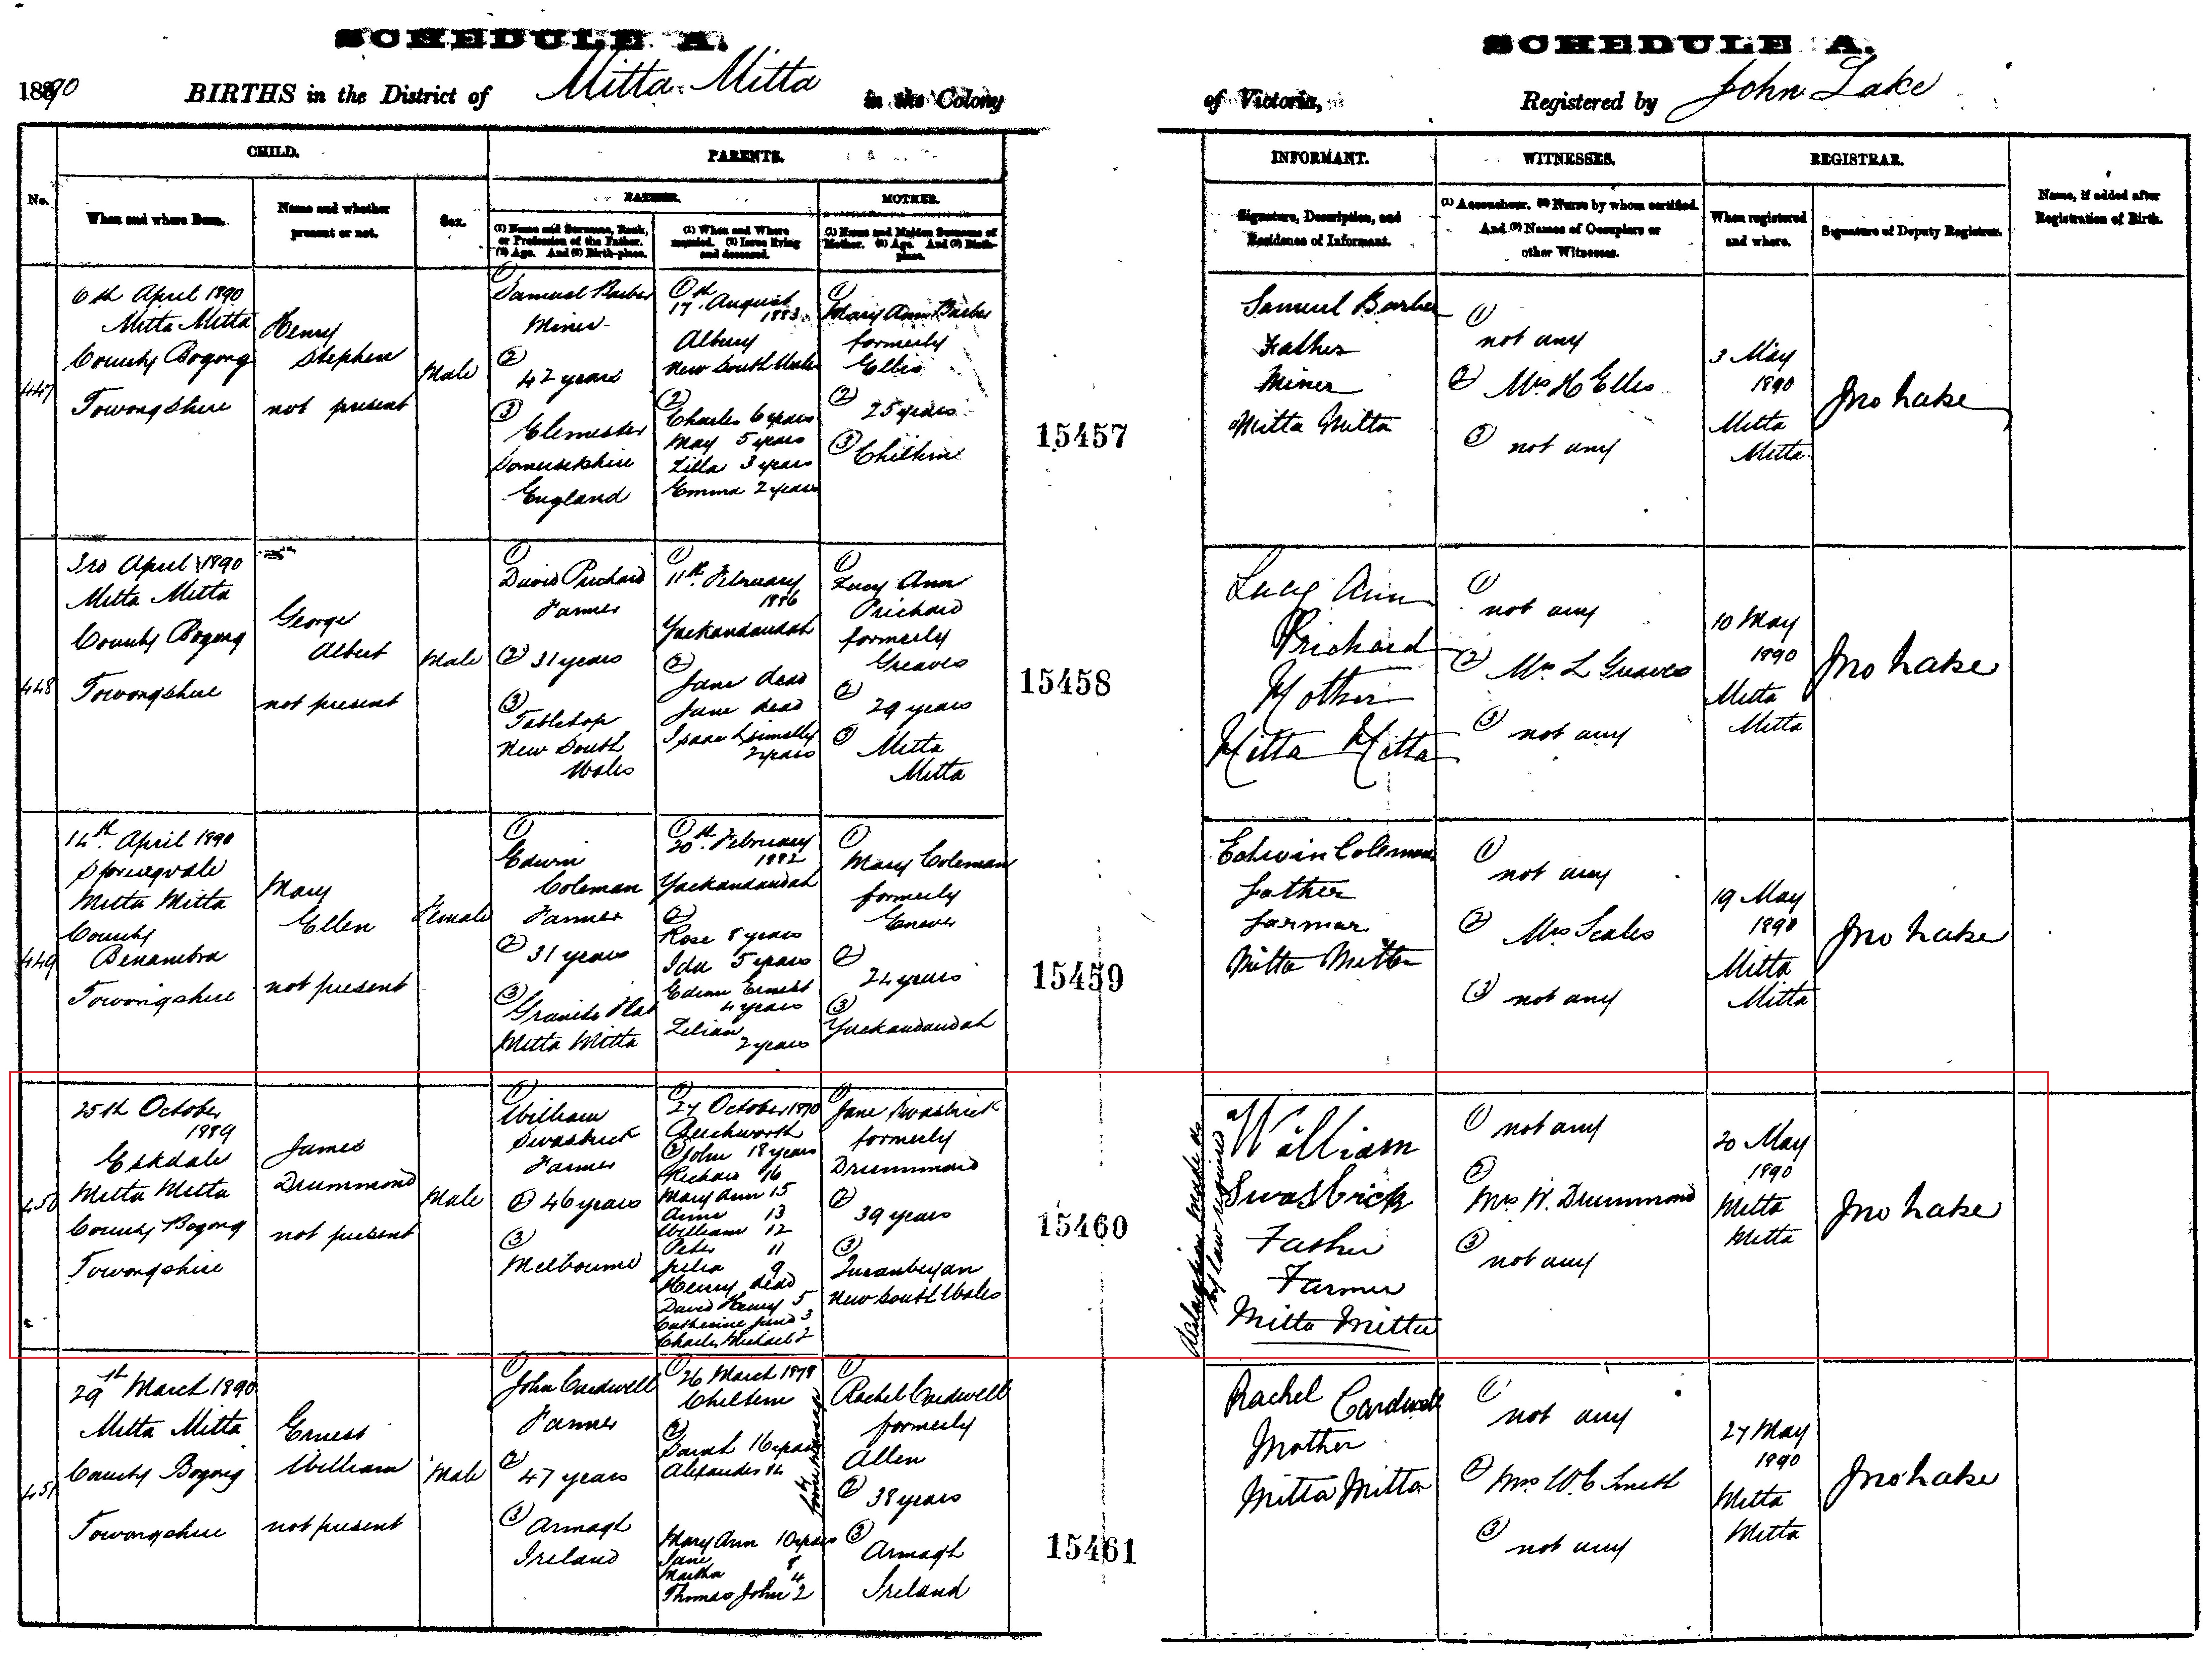 SCHEDULE A.
1890 BIRTHS in the District of Mitta Mitta in the Colony
SCHEDULE A.
of Victoria, Registered by John Lake
CHILD.
PARENTS.
No.
When and where Born.
Name and whether
present or not.
Sex.
FATHER.
(1) Name and Surname, Rank,
or Profession of the Father.
(2) Age. And (3) Birth-place.
(1) When and Where
married. (2) Issue living
and deceased.
MOTHER.
(1) Name and Maiden Surname of
Mother. (2) Age. And (3) Birth-
place.
INFORMANT.
Signature, Description, and
Residence of Informant.
WITNESSES.
(1) Accoucheur. (2) Nurse by whom certified.
And (3) Names of Occupiers or
other Witnesses.
REGISTRAR.
When registered
and where.
Signature of Deputy Registrar.
Name, if added after
Registration of Birth.
447
6th April 1890
Mitta Mitta
County Bogong
Towongshire
Henry
Stephen
not present
Male
(1)
Samuel Barber
Miner
(2)
42 years
(3)
Somersetshire
England
(1)
17th August
1883
Albury
New South Wales
(2)
Charles 6 years
May 5 years
Zilla 3 years
Emma 2 years
(1)
Mary Ann Barber
formerly
Ellis
(2)
25 years
(3)
Chiltern
15457
Samuel Barber
Father
Miner
Mitta Mitta
(1)
not any
(2) Mrs H Ellis
(3) not any
3 May
1890
Mitta
Mitta
Jno Lake
448
3rd April 1890
Mitta Mitta
County Bogong
Towongshire
George
Albert
not present
Male
(1)
David Prichard
Farmer
(2) 31 years
(3)
Tabletop
New South
Wales
(1)
11th February
1886
Yackandandah
(2)
Jane dead
Jane dead
Isaac
2 years
(1)
Lucy Ann
Prichard
formerly
Greaves
(2)
29 years
(3)
Mitta
Mitta
15458
Lucy Ann
Prichard
Mother
Mitta Mitta
(1)
not any
(2) Mrs L Greaves
(3) not any
10 May
1890
Mitta
Mitta
Jno Lake
449
14th April 1890
Mitta Mitta
County
Benambra
Towongshire
Mary
Ellen
not present
Female
(1)
Edwin
Coleman
Farmer
(2) 31 years
(3)
Granite Flat
Mitta Mitta
(1)
20th February
1882
Yackandandah
(2)
Rose 8 years
Ida 5 years
Edwin Ernest
4 years
Lilian
2 years
(1)
Mary Coleman
formerly
Enever
(2)
24 years
(3)
Yackandandah
15459
Edwin Coleman
Father
Farmer
Mitta Mitta
(1)
not any
(2) Mrs Scales
(3) not any
19 May
1890
Mitta
Mitta
Jno Lake
450
25th October
1889
Eskdale
Mitta Mitta
County Bogong
Towongshire
James
Drummond
not present
Male
(1)
William
Swasbrick
Farmer
(2) 46 years
(3)
Melbourne
(1)
27 October 1870
Beechworth
(2) John 18 years
Richard 16
Mary Ann 15
Annie 13
William 12
Peter 11
Julia 9
Henry dead
David Henry 5
Catherine Jane 3
Charles Michael 2
(1)
Jane Swasbrick
formerly
Drummond
(2)
39 years
(3)
Queanbeyan
New South Wales
15460
a declaration made as
by law required
William
Swasbrick
Father
Farmer
Mitta Mitta
(1) not any
(2)
Mrs H. Drummond
(3)
not any
20 May
1890
Mitta
Mitta
Jno Lake
451
29th March 1890
Mitta Mitta
County Bogong
Towongshire
Ernest
William
not present
Male
(1)
John Cardwell
Farmer
(2)
47 years
(3)
Armagh
Ireland
(1)
26 March 1878
Chiltern
(2)
Sarah 16 years
Alexander 14
Mary Ann 10 years
Jane 8
Martha 4
Thomas John 2
(1)
Rachel Cardwell
formerly
Allen
(2)
38 years
(3)
Armagh
Ireland
15461
Rachel Cardwell
Mother
Mitta Mitta
(1)
not any
(2) Mrs W. C Smith
(3)
not any
27 May
1890
Mitta
Mitta
Jno Lake